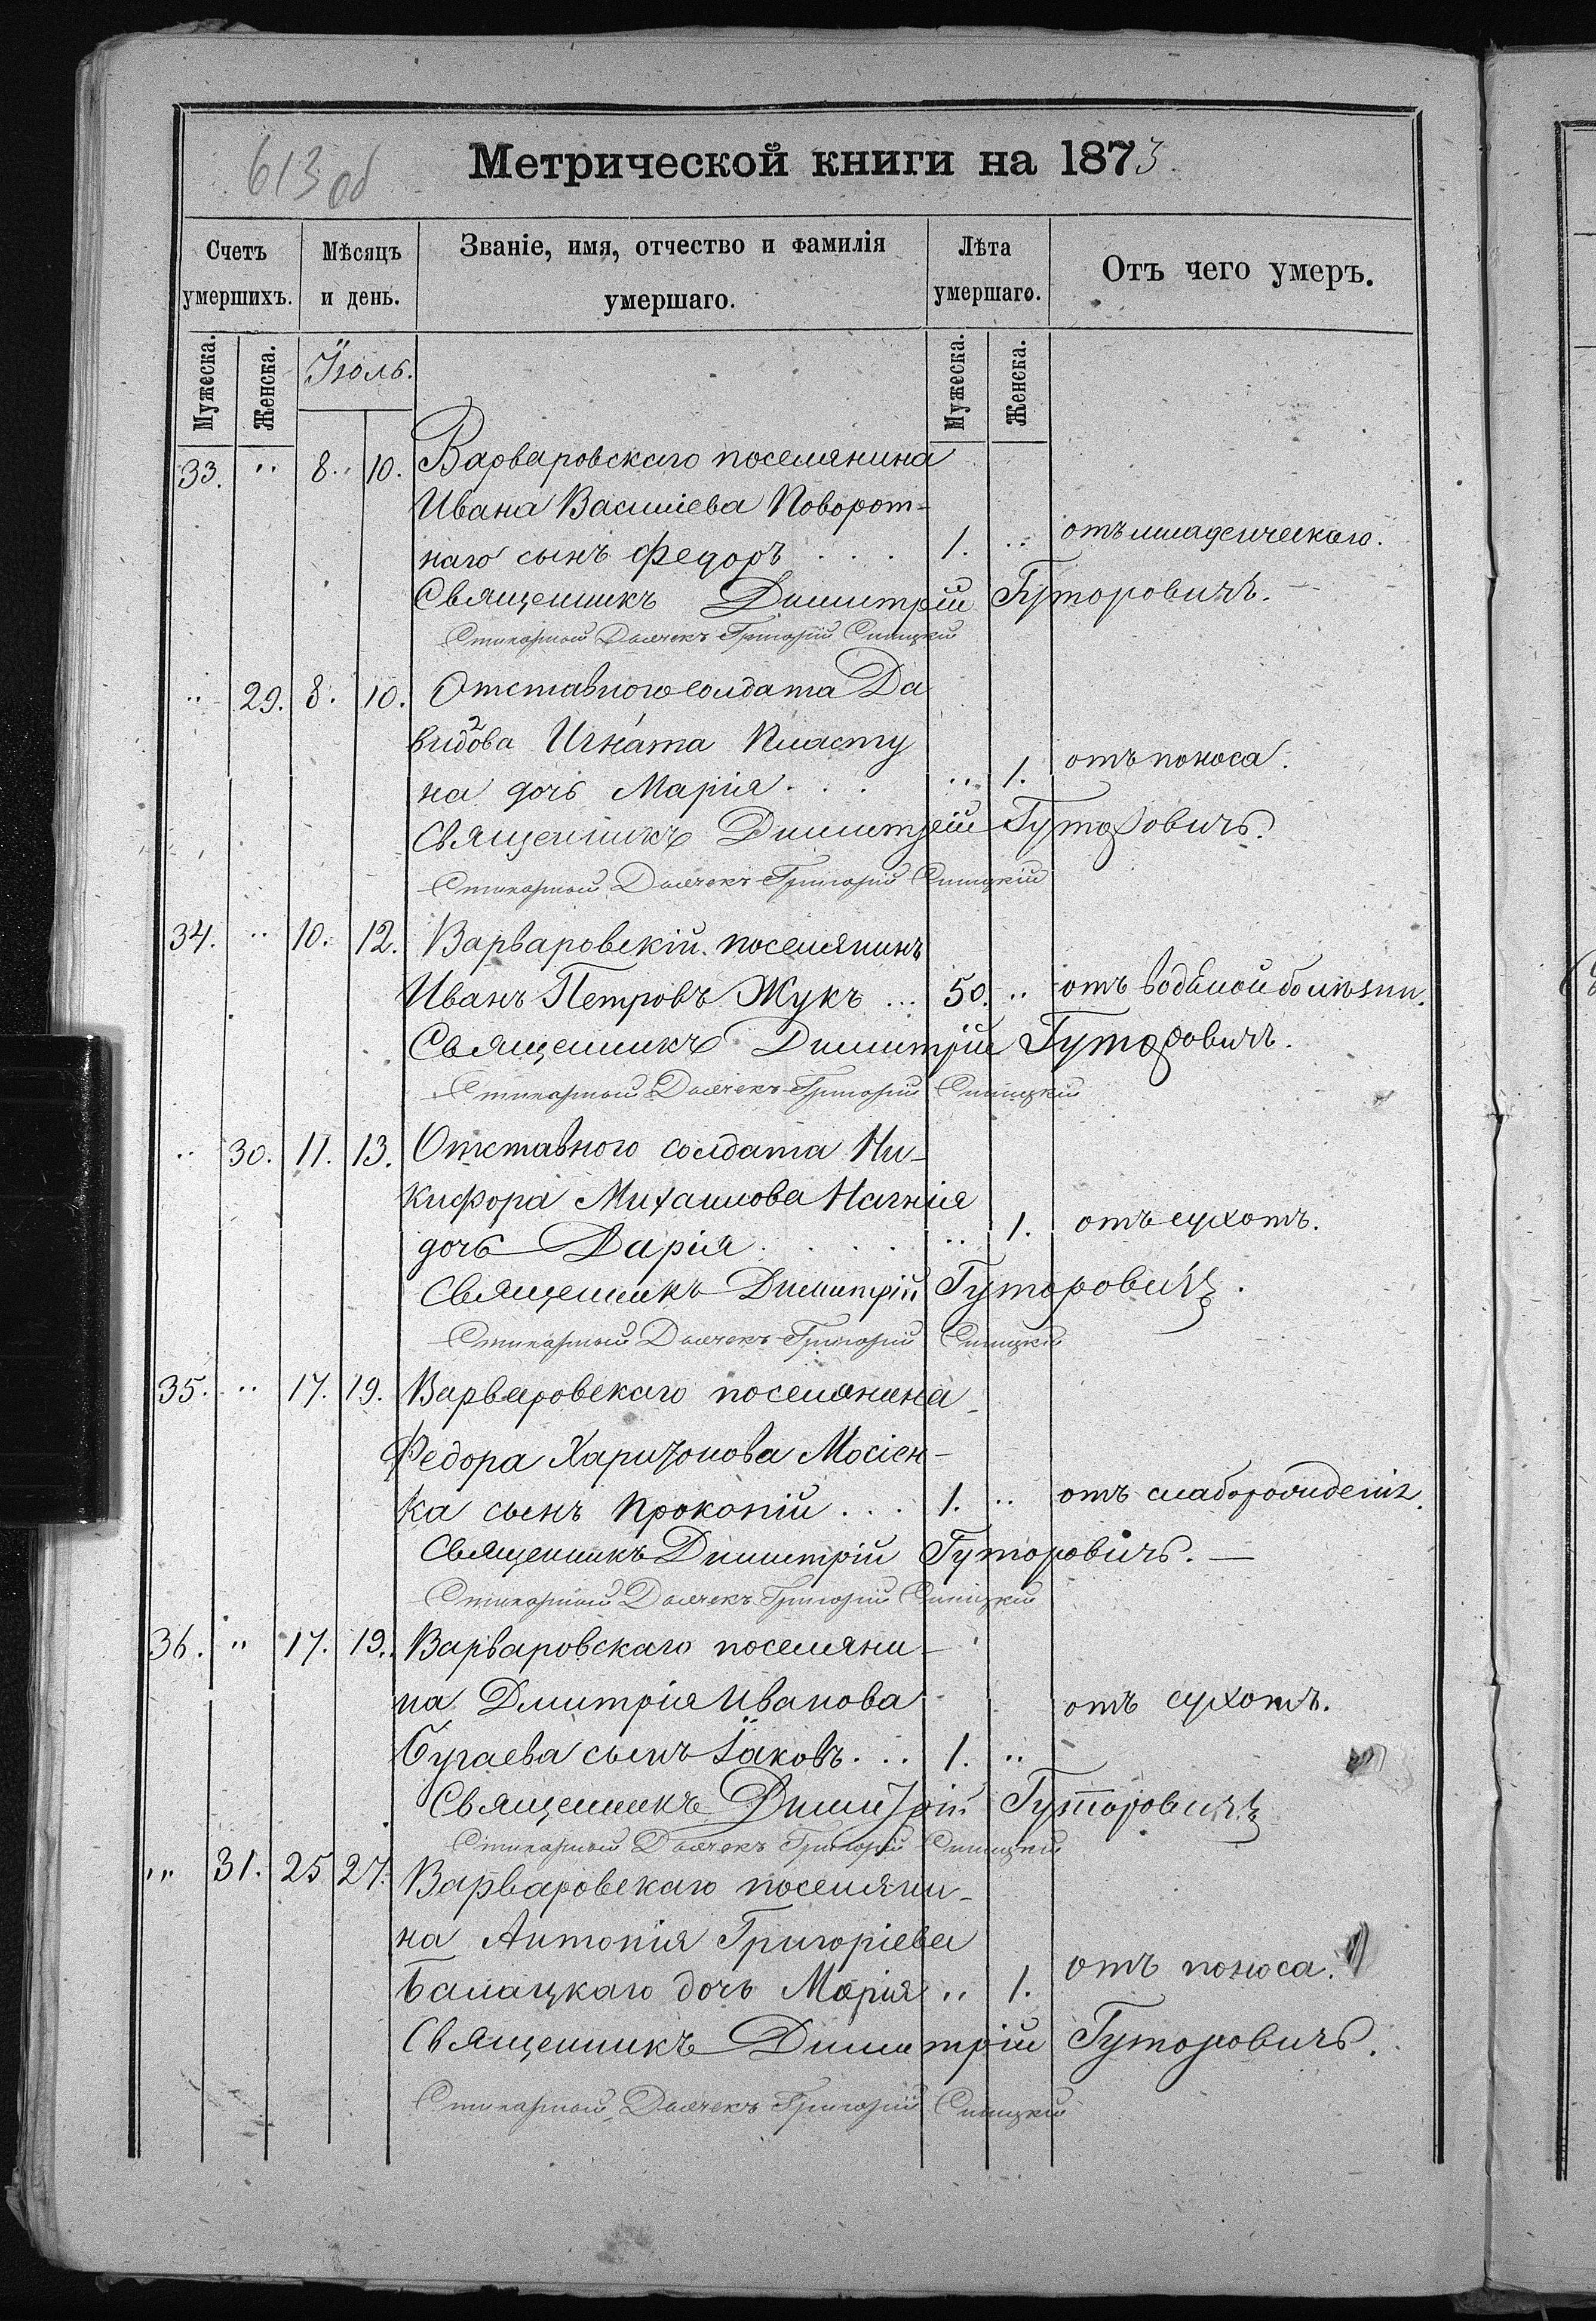 613 об
Метрической книги на 1873.
Счетъ умершихъ. Мѣсяцъ и день. Званіе, имя, отчество и фамилія умершаго. Лѣта умершаго. Отъ чего умеръ.
Мужеска. Женска. Мужеска. Женска.
Іюль.
33. " 8. 10. Варваровскаго поселянина
Ивана Василіева Поворот-
наго сынъ Федоръ . . . 1. " отъ младенческаго.
Священникъ Димитрій Гуторовичъ.
Стихарный Дьячекъ Григорій
" 29. 8. 10. Отставного солдата Да
видова Игната Пласту
на дочь Марія . . . " 1. отъ поноса.
Священникъ Димитрій Гуторовичъ.
Стихарный Дьячекъ Григорій
34. " 10. 12. Варваровскій поселянинъ
Иванъ Петровъ Жукъ ... 50. " отъ водяной болѣзни.
Священникъ Димитрій Гуторовичъ.
Стихарный Дьячекъ Григорій
" 30. 11. 13. Отставного солдата Ни-
кифора Михаилова
дочь Дарія . . . . " 1. отъ сухотъ.
Священникъ Димитрій Гуторовичъ.
Стихарный Дьячекъ Григорій
35. " 17. 19. Варваровскаго поселянина
Федора Харитонова Мосіен-
ка сынъ Прокопій . . . 1. " отъ
Священникъ Димитрій Гуторовичъ.
Стихарный Дьячекъ Григорій
36. " 17. 19. Варваровскаго поселяни-
на Дмитрія Иванова отъ сухотъ.
Бугаева сынъ Іаковъ. .. 1. "
Священникъ Димитрій Гуторовичъ
Стихарный Дьячекъ Григорій
" 31. 25 27. Варваровскаго поселяни-
на Антонія Григоріева
Балацкаго дочь Марія " 1. отъ поноса.
Священникъ Димитрій Гуторовичъ.
Стихарный Дьячекъ Григорій